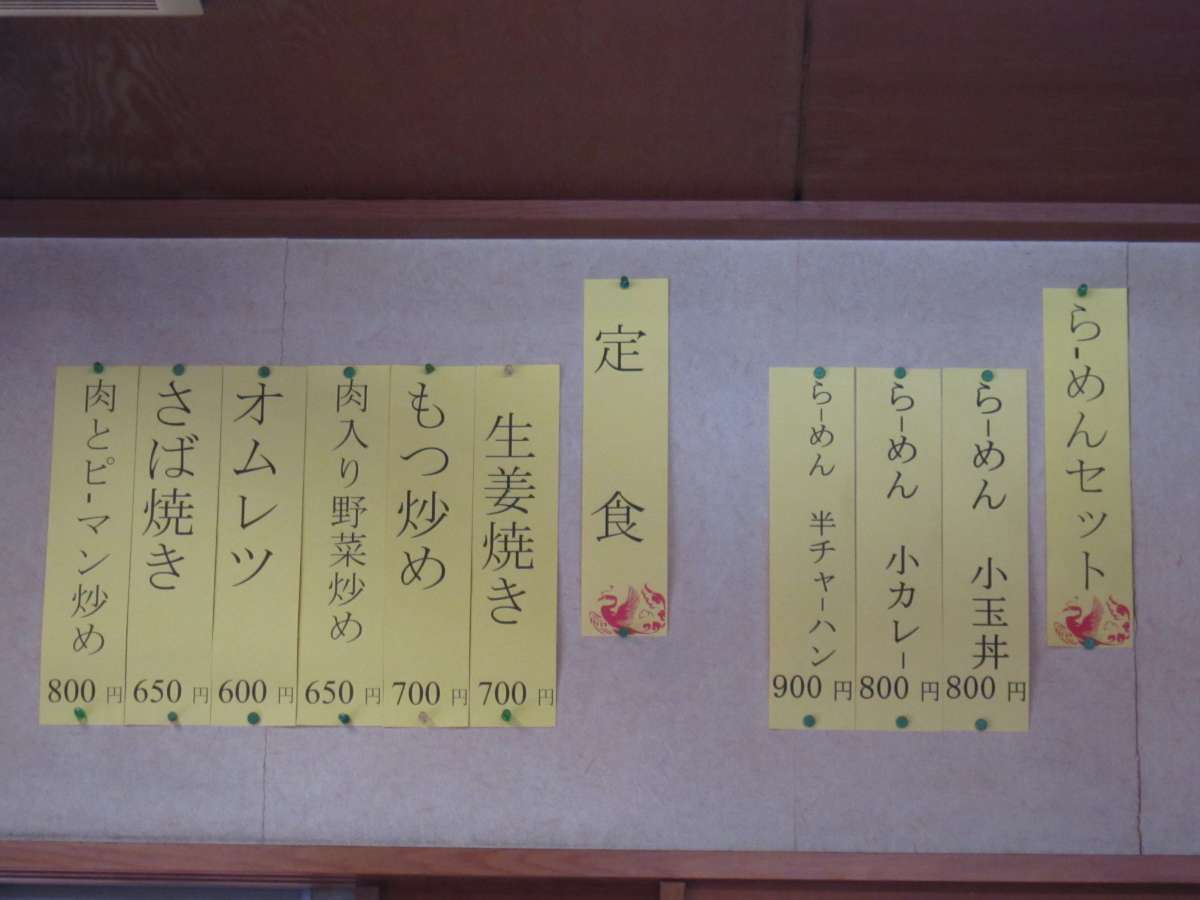 らーめんセット
らーめん 小玉丼
800円
らーめん 小カレー
800円
らーめん 半チャーハン
900円
定食
生姜焼き
700円
もつ炒め
700円
肉入り野菜炒め
650円
オムレツ
600円
さば焼き
650円
肉とピーマン炒め
800円